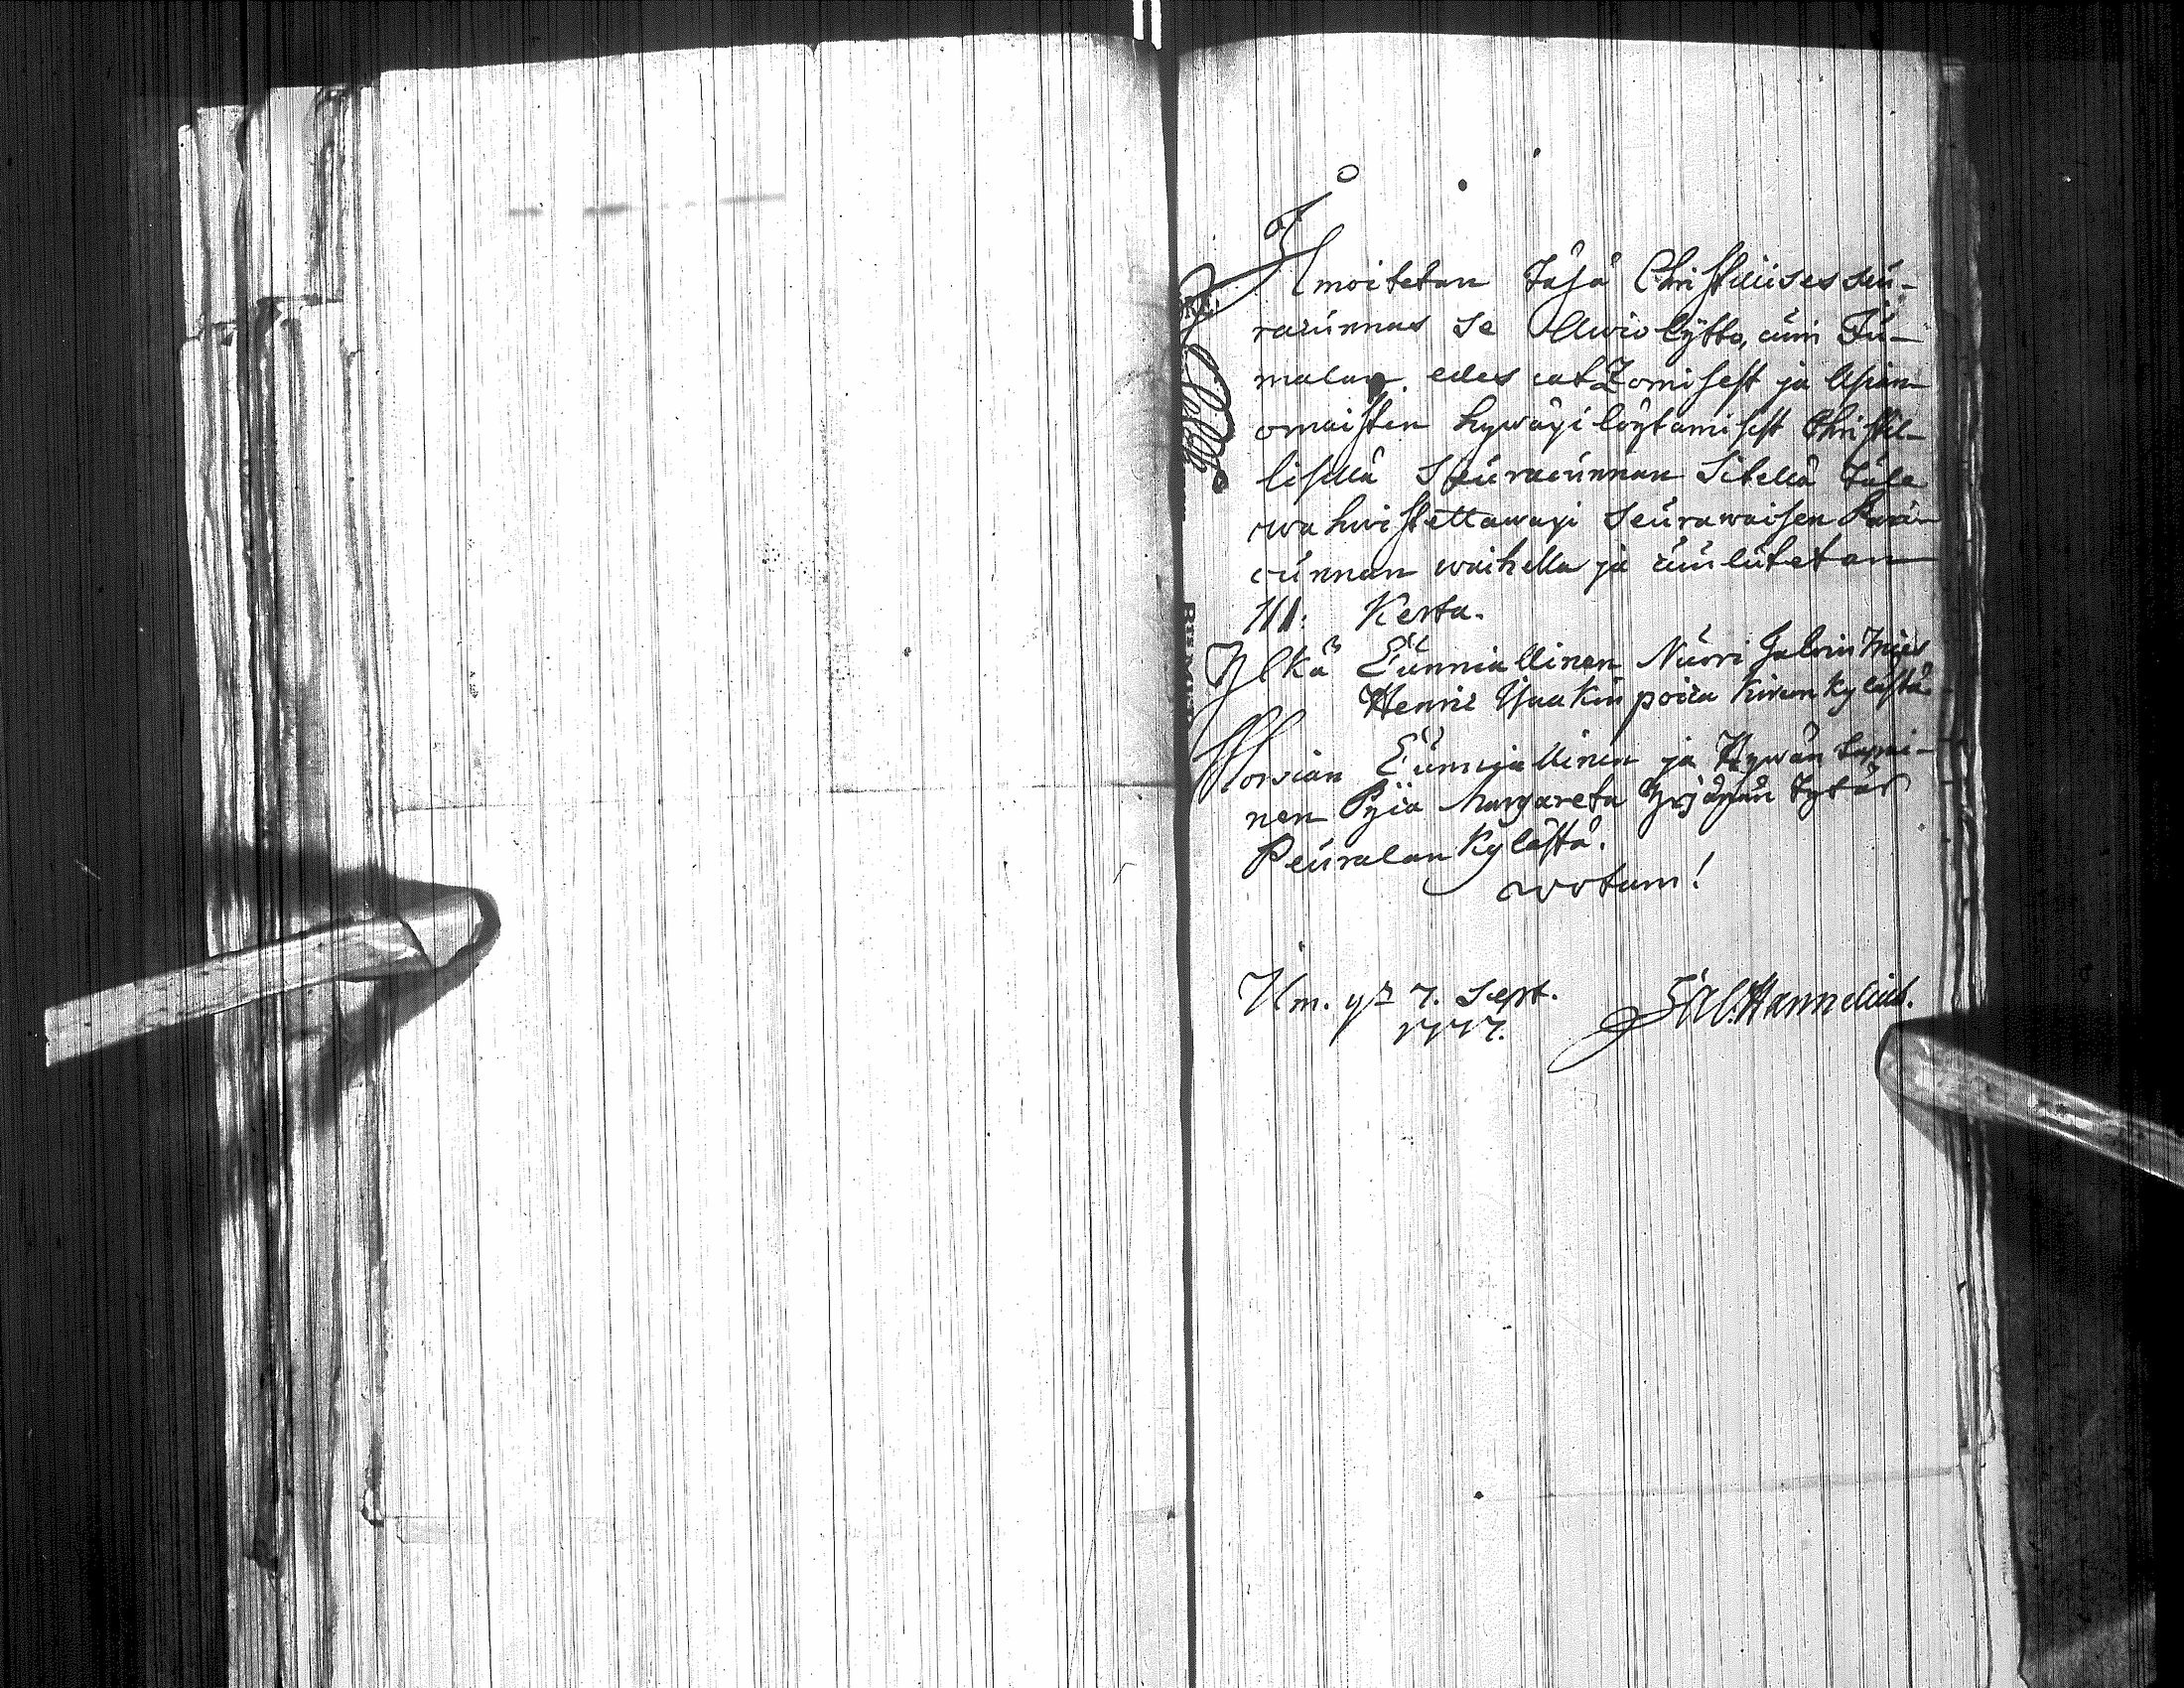 Ilmoitetan täsä Christilises seu-
racunnas se Awio lijtto, cuin Ju-
malan edes catzomisest ja Asian
omaisten hywäxi löytamisest Christil-
lisellä Seuracunnan sitellä täle
wahwistettawaxi seurawaisen Parin
cunnan waihella ja cuulutetan
III. Kerta.
Ylkä Cunniallinen Nuori
Henric Isaakin poica kylästä
Morsian Cunniallinen ja Hywän tapai-
nen Pijca Margareta Yrjänän tytär
Peuralan kylästä.
votum!
Um. 7. Sept.
1777.
Hannelius.